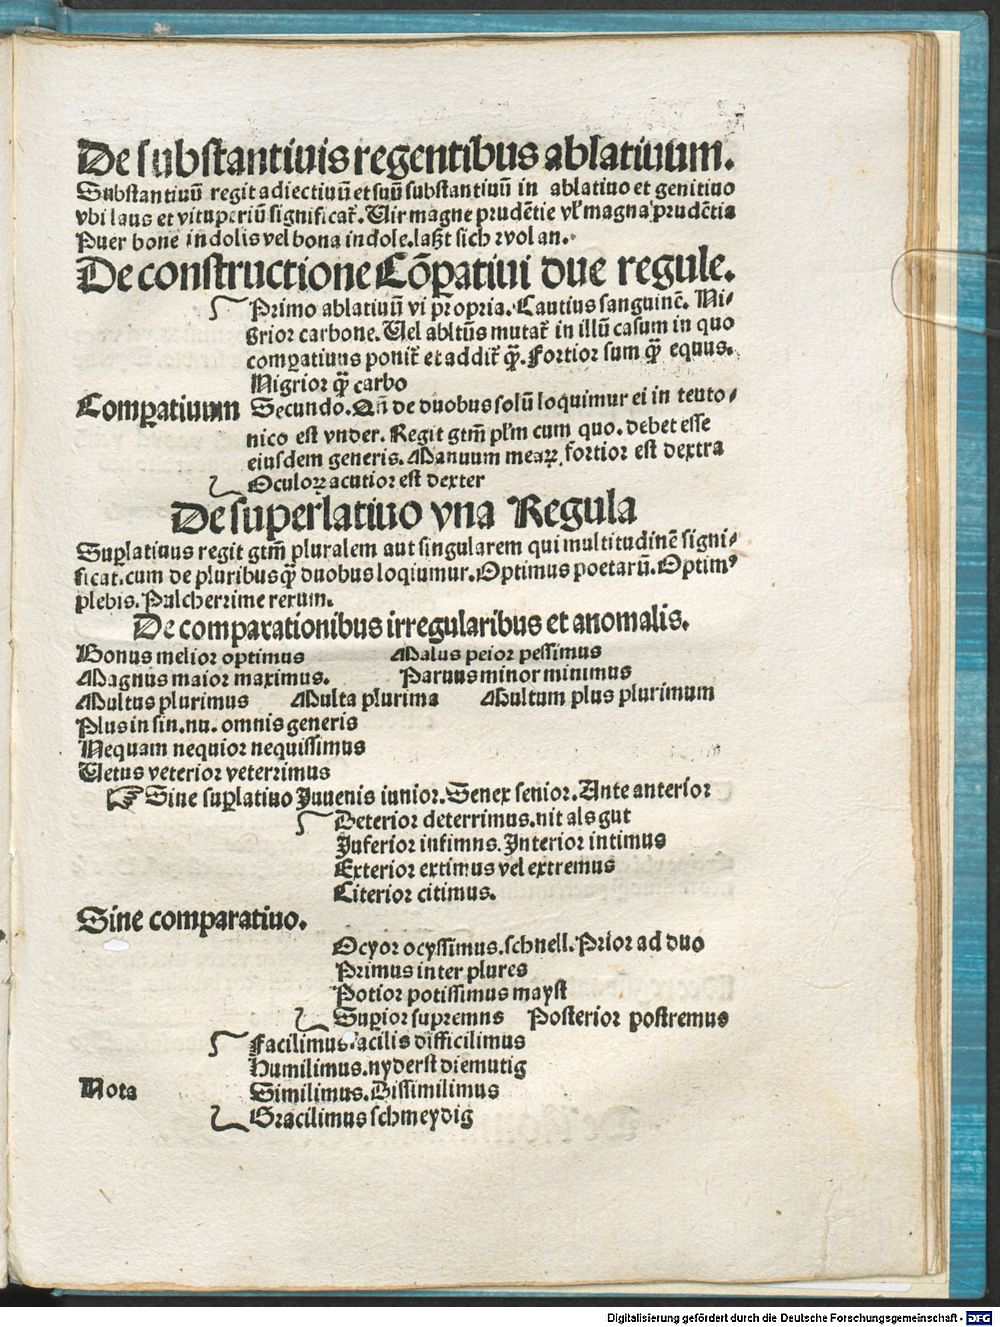 De substantiuis regentibus ablatiuum.
Substantiuū regit adiectiuū et suū substantiuū in ablatiuo et genitiuo
vbi laus et vituperiū significat̄. Uir magne prudētie vl' magna prudētia
Puer bone indolis vel bona indole. laßt sich wol an.
De constructione Cōpatiui due regule.
Primo ablatiuū vi propria. Cautius sanguinē. Ni-
grior carbone. Uel abltūs mutat̄ in illū casum in quo
compatiuus ponit̄ et addit̄ q̄. Fortior sum q̄ equus.
Nigrior q̄ carbo
Compatiuum Secundo. Qn̄ de duobus solū loquimur ei in teuto-
nico est vnder. Regit gtm̄ pl'm cum quo. debet esse
eiusdem generis. Manuum meaꝝ fortior est dextra
Oculoꝝ acutior est dexter
De superlatiuo vna Regula
Suplatiuus regit gtm̄ pluralem aut singularem qui multitudinē signi-
ficat. cum de pluribus q̄ duobus loqiumur. Optimus poetarū. Optimꝰ
plebis. Pulcherrime rerum.
De comparationibus irregularibus et anomalis.
Bonus melior optimus Malus peior pessimus
Magnus maior maximus. Paruus minor minimus
Multus plurimus Multa plurima Multum plus plurimum
Plus in sin. nu. omnis generis
Nequam nequior nequissimus
Uetus veterior veterrimus
☞ Sine suplatiuo Juuenis iunior. Senex senior. Ante anterior
Deterior deterrimus. nit als gut
Inferior infimns. Interior intimus
Exterior extimus vel extremus
Citerior citimus.
Sine comparatiuo.
Ocyor ocyssimus. schnell. Prior ad duo
Primus inter plures
Potior potissimus mayst
Supior supremns Posterior postremus
Facilimus facilis difficilimus
Humilimus. nyderst diemutig
Nota Similimus. Dissimilimus
Gracilimus schmeydig
Digitalisierung gefördert durch die Deutsche Forschungsgemeinschaft - DFG